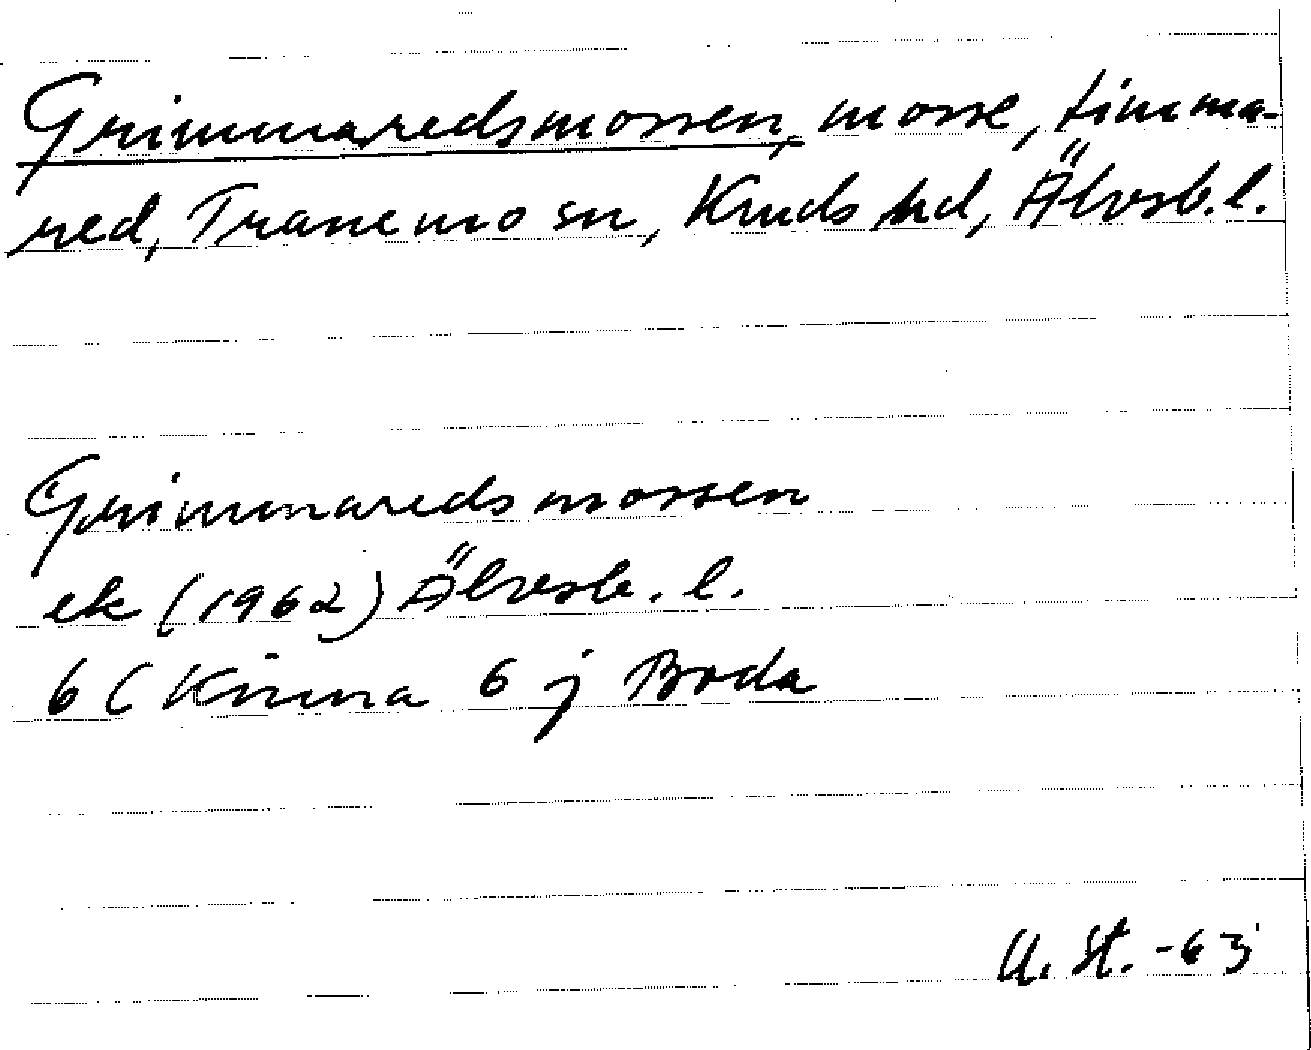 Grimmaredsmossen, mosse, Limma-
red, Tranemo sn, Kinds hd, Älvsb. l.
Grimmaredsmossen
ek (1962) Älvsb. l.
6 C Kinna 6 j Boda
U. St. -63